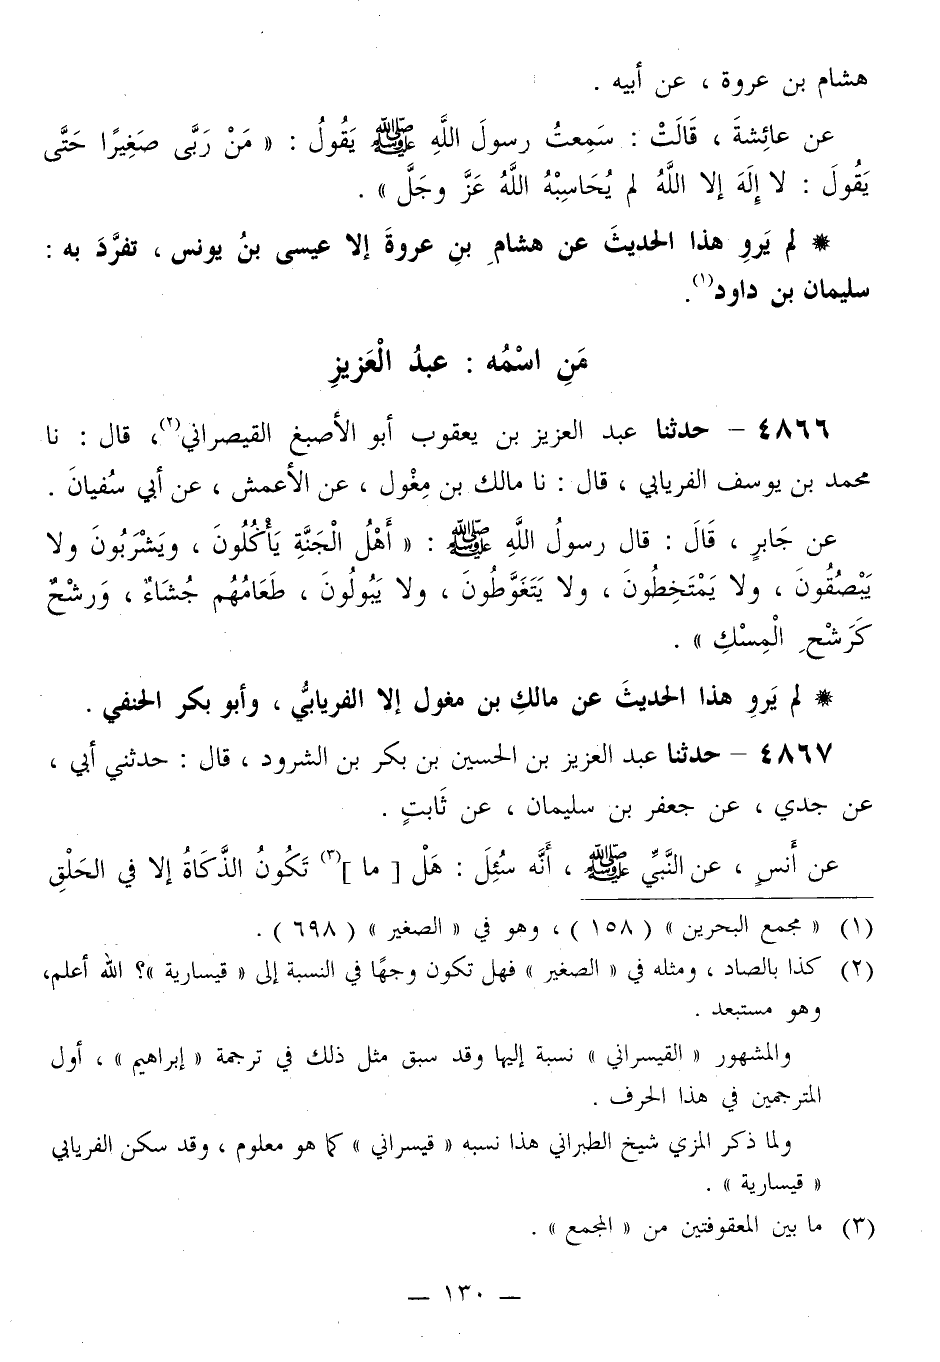 هشام بن عروة ، عن أبيه .
عن عائِشةَ ، قَالَتْ : سَمِعتُ رسولَ اللَّهِ ﷺ يَقُولُ : « مَنْ رَبَّى صَغِيرًا حَتَّى
يَقُولَ : لا إِلَهَ إلا اللَّهُ لم يُحَاسِبْهُ اللَّهُ عَزَّ وجَلَّ » .
* لم يَروِ هذا الحديثَ عن هشامِ بنِ عروةَ إلا عيسى بنُ يونس ، تفرَّدَ به :
سليمان بن داود(١).
مَنِ اسْمُه : عبدُ الْعَزيزِ
٤٨٦٦ – حدثنا عبد العزيز بن يعقوب أبو الأصبغ القيصراني(٢)، قال : نا
محمد بن يوسف الفريابي ، قال : نا مالك بن مِغْول ، عن الأعمش ، عن أبي سُفيانَ .
عن جَابرٍ ، قَالَ : قال رسولُ اللَّهِ ﷺ : « أَهْلُ الْجَنَّةِ يَأْكُلُونَ ، ويَشْرَبُونَ ولا
يَبْصُقُونَ ، ولا يَمْتَخِطُونَ ، ولا يَتَغَوَّطُونَ ، ولا يَبُولُونَ ، طَعَامُهُم جُشَاءٌ ، وَرشْحٌ
كَرَشْحِ الْمِسْكِ » .
* لم يَروِ هذا الحديثَ عن مالكِ بن مغول إلا الفريابيُّ ، وأبو بكر الحنفي .
٤٨٦٧ – حدثنا عبد العزيز بن الحسين بن بكر بن الشرود ، قال : حدثني أبي ،
عن جدي ، عن جعفر بن سليمان ، عن ثَابتٍ .
عن أَنسٍ ، عن النَّبيِّ ﷺ ، أَنَّه سُئِلَ : هَلْ [ ما ](٣) تَكُونُ الذَّكَاةُ إلا في الحَلْقِ
(١) « مجمع البحرين » ( ١٥٨ ) ، وهو في « الصغير » ( ٦٩٨ ) .
(٢) كذا بالصاد ، ومثله في « الصغير » فهل تكون وجهًا في النسبة إلى « قيسارية »؟ الله أعلم،
وهو مستبعد .
والمشهور « القيسراني » نسبة إليها وقد سبق مثل ذلك في ترجمة « إبراهيم » ، أول
المترجمين في هذا الحرف .
ولما ذكر المزي شيخ الطبراني هذا نسبه « قيسراني » كما هو معلوم ، وقد سكن الفريابي
« قيسارية » .
(٣) ما بين المعقوفتين من « المجمع » .
— ١٣٠ —